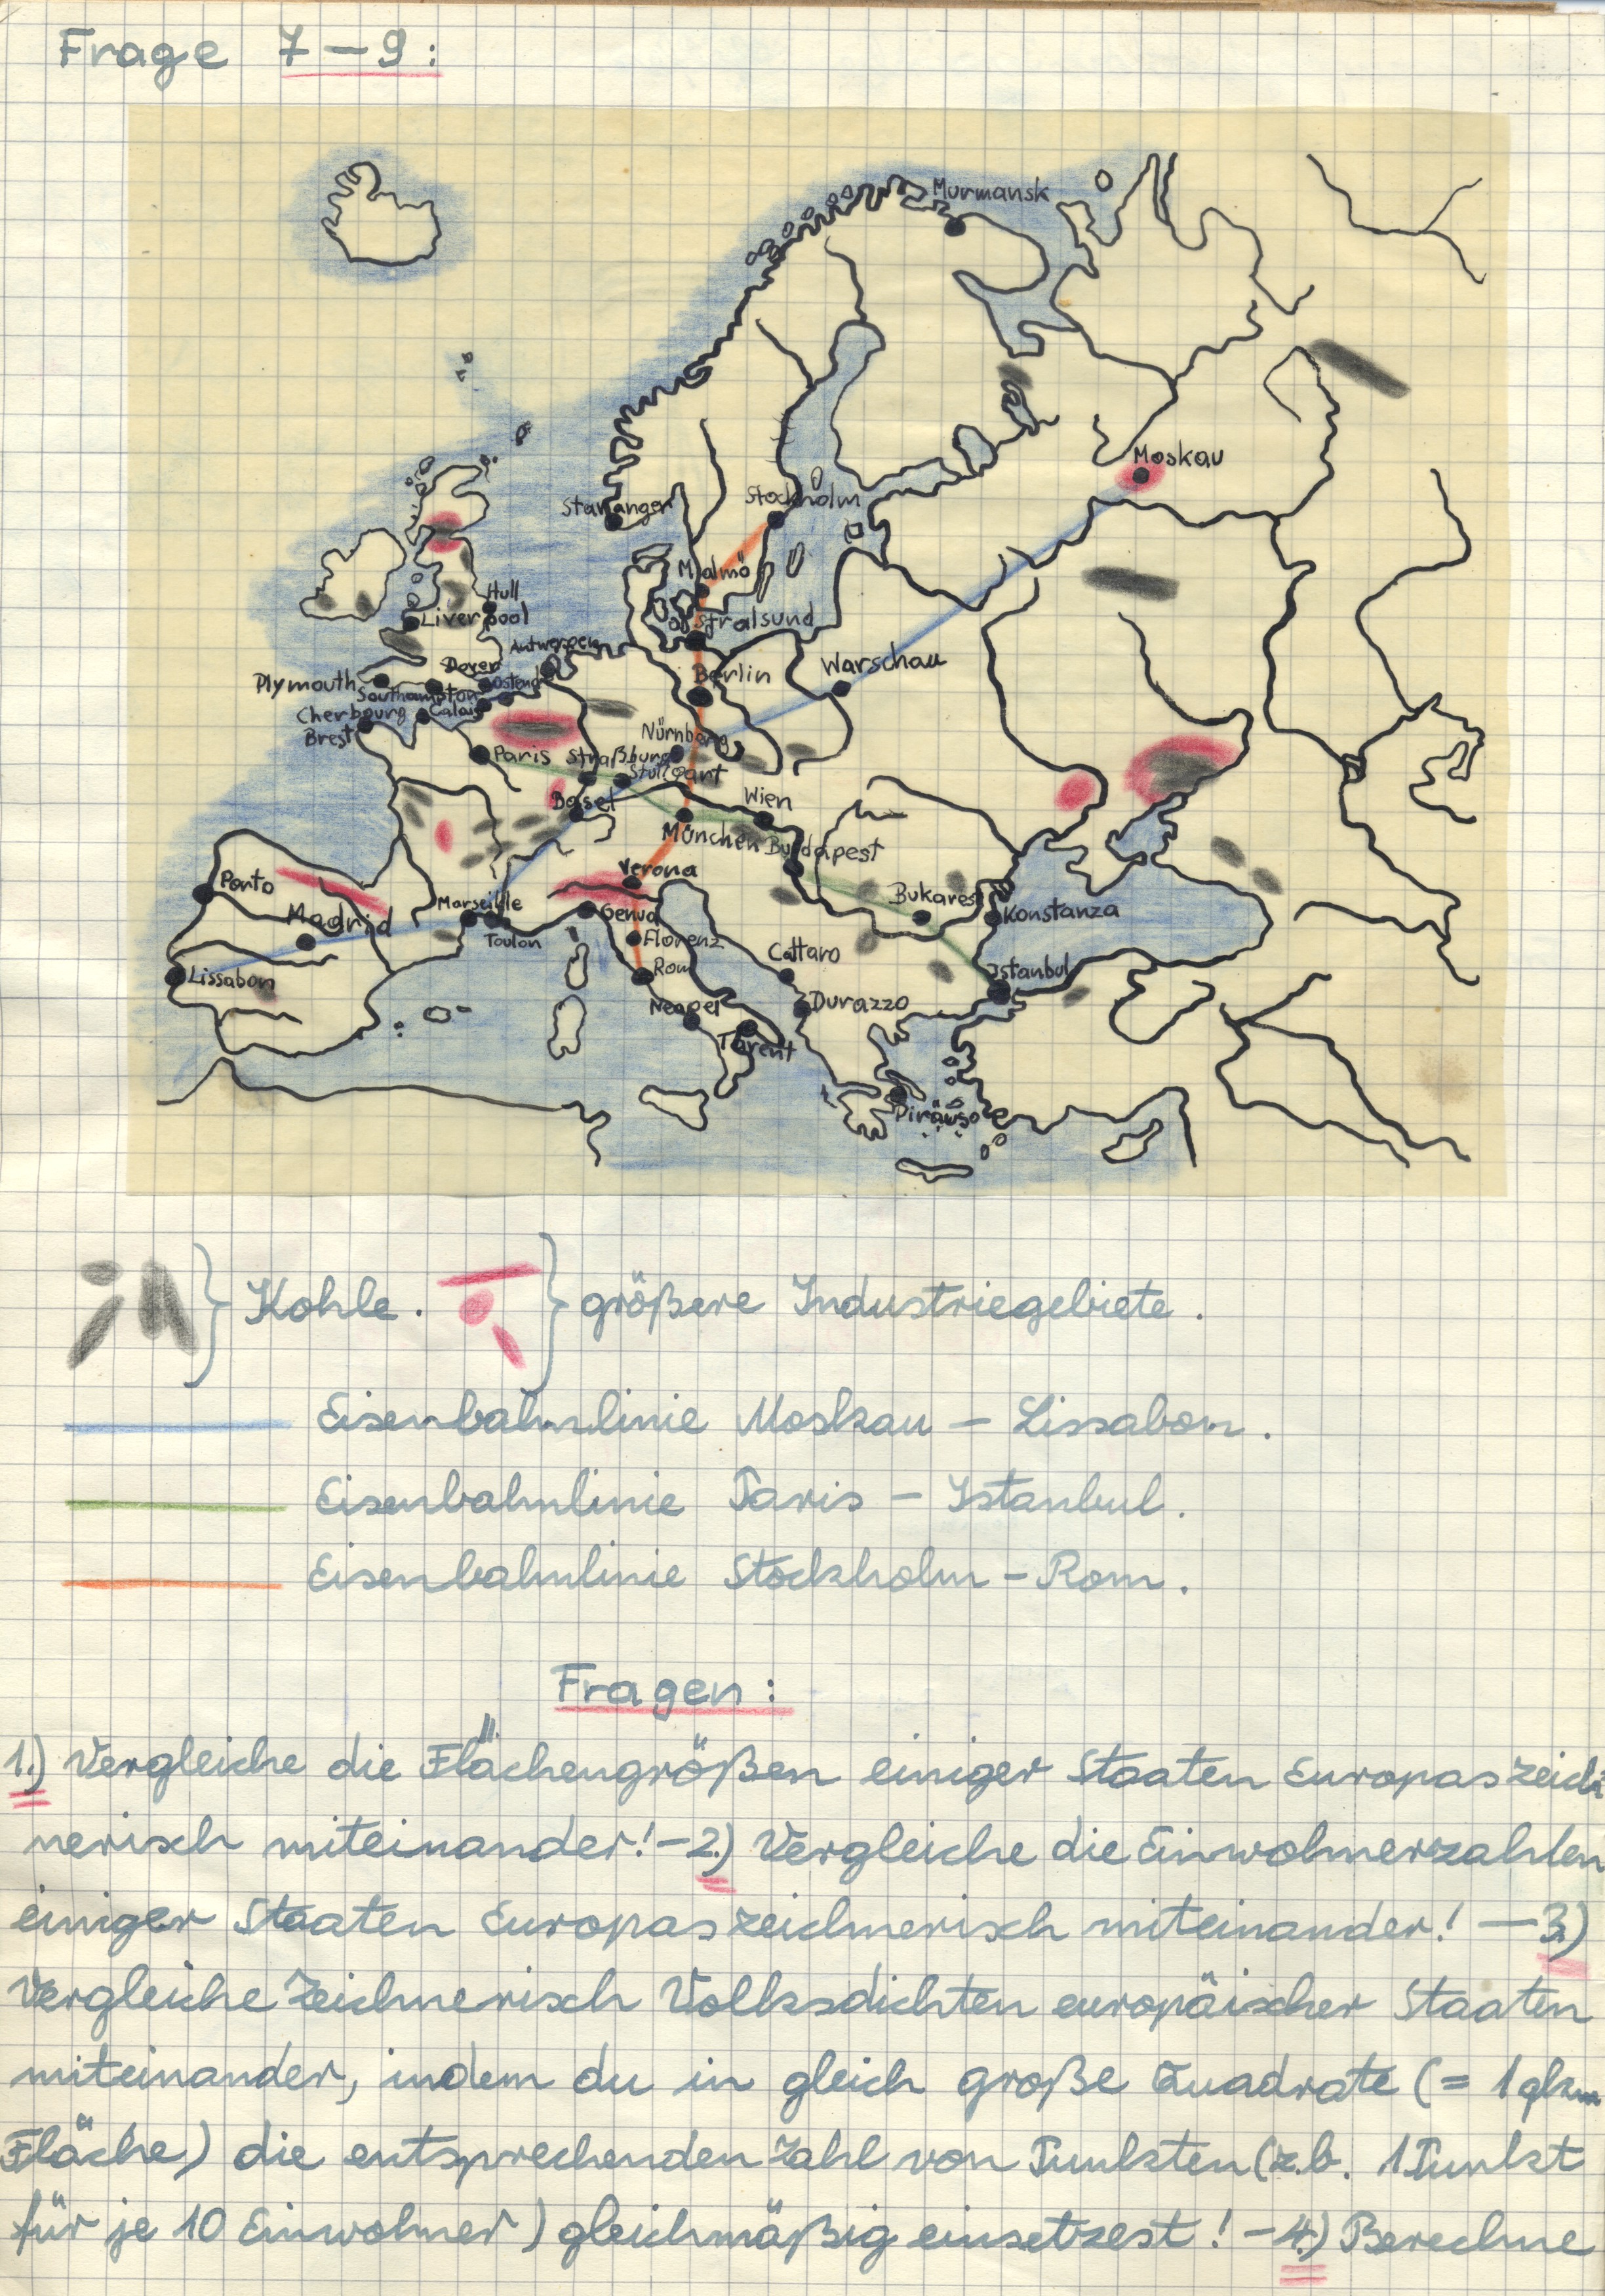 Frage 7 – 9 :
Murmansk
Moskau
Stavanger
Stockholm
Malmö
Hull
Liverpool
Stralsund
Antwerpen
Dover
Ostende
Berlin
Warschau
Plymouth
Southampton
Cherbourg
Calais
Brest
Nürnberg
Paris
Straßburg
Stuttgart
Basel
Wien
München
Budapest
Verona
Porto
Bukarest
Marseille
Genua
Konstanza
Madrid
Toulon
Florenz
Cattaro
Lissabon
Rom
Istanbul
Neapel
Durazzo
Tarent
Piräus
Kohle. größere Industriegebiete.
Eisenbahnlinie Moskau – Lissabon.
Eisenbahnlinie Paris – Istanbul.
Eisenbahnlinie Stockholm – Rom.
Fragen:
1.) Vergleiche die Flächengrößen einiger Staaten Europas zeich
nerisch miteinander! – 2.) Vergleiche die Einwohnerzahlen
einiger Staaten Europas zeichnerisch miteinander! – 3.)
Vergleiche zeichnerisch Volksdichten europäischer Staaten
miteinander, indem du in gleich große Quadrate (= 1 qkm
Fläche) die entsprechenden Zahl von Punkten (z.b. 1 Punkt
für je 10 Einwohner) gleichmäßig einsetzest! – 4.) Berechne